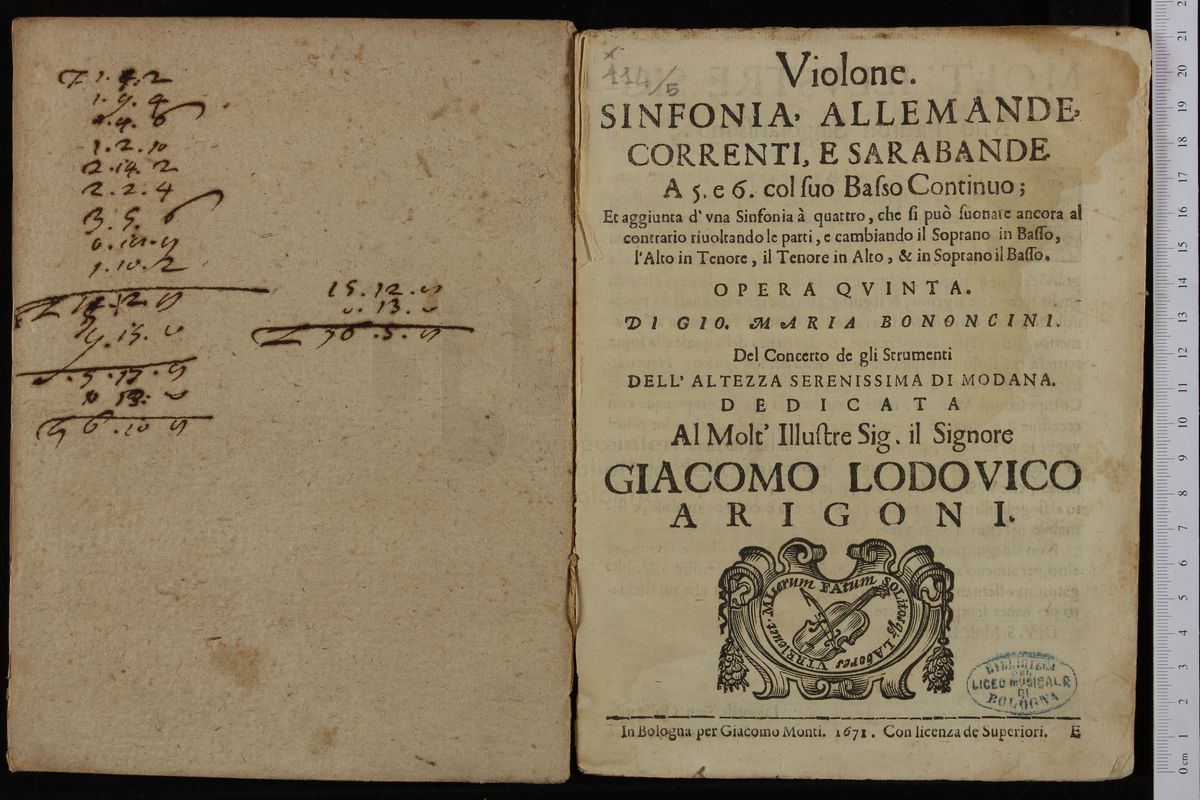 1. 4. 2
1. 9. 4
1. 2. 10
2. 14. 2
2. 2. 4
3. 5. 6
1. 10. 2
15. 12.
0. 13.
114/5
Violone.
SINFONIA, ALLEMANDE,
CORRENTI, E SARABANDE
A 5. e 6. col ſuo Baſso Continuo;
Et aggiunta d'vna Sinfonia à quattro, che ſi può ſuonare ancora al
contrario riuoltando le parti, e cambiando il Soprano in Baſſo,
l'Alto in Tenore, il Tenore in Alto, & in Soprano il Baſſo.
OPERA QVINTA.
DI GIO. MARIA BONONCINI.
Del Concerto de gli Strumenti
DELL'ALTEZZA SERENISSIMA DI MODANA.
DEDICATA
Al Molt' Illuſtre Sig. il Signore
GIACOMO LODOVICO
ARIGONI.
MIserum FAtum SOlitosq; LAbores VTRIenet
BIBLIOTECA
DEL
LICEO MUSICALE
DI
BOLOGNA
In Bologna per Giacomo Monti. 1671. Con licenza de Superiori. E